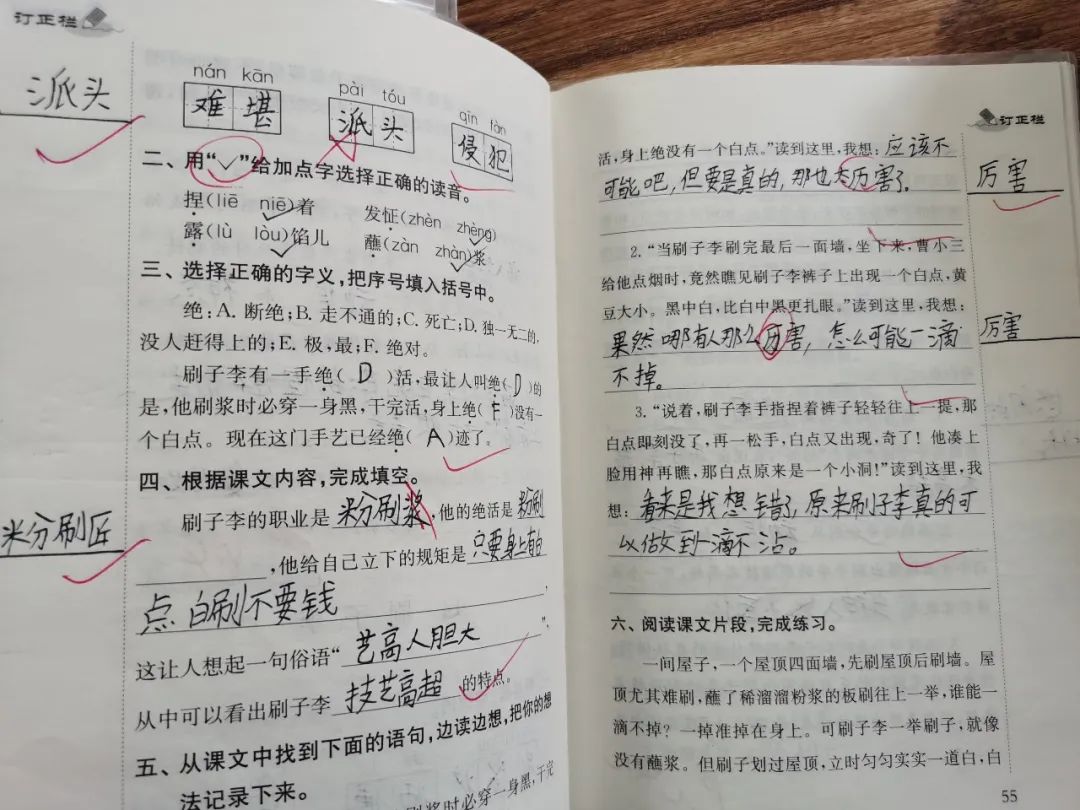 订正栏
派头
nán kān
难堪
pài tóu
派头
qīn fàn
侵犯
二、用“✓”给加点字选择正确的读音。
捏(liē niē)着 发怔(zhèn zhèng)
露(lù lòu)馅儿 蘸(zàn zhàn)浆
三、选择正确的字义,把序号填入括号中。
绝:A. 断绝;B. 走不通的;C. 死亡;D. 独一无二的,
没人赶得上的;E. 极,最;F. 绝对。
刷子李有一手绝( D )活,最让人叫绝( D )的
是,他刷浆时必穿一身黑,干完活,身上绝( F )没有一
个白点。现在这门手艺已经绝( A )迹了。
四、根据课文内容,完成填空。
刷子李的职业是 粉刷浆 ,他的绝活是 粉刷
粉刷匠
,他给自己立下的规矩是 只要身上有白
点 白刷不要钱
这让人想起一句俗语“ 艺高人胆大 ”,
从中可以看出刷子李 技艺高超 的特点。
五、从课文中找到下面的语句,边读边想,把你的想
法记录下来。
刷浆时必穿一身黑,干完
订正栏
活,身上绝没有一个白点。”读到这里,我想: 应该不
可能吧,但要是真的,那也太厉害了。
厉害
2. “当刷子李刷完最后一面墙,坐下来,曹小三
给他点烟时,竟然瞧见刷子李裤子上出现一个白点,黄
豆大小。黑中白,比白中黑更扎眼。”读到这里,我想:
果然哪有人那么厉害,怎么可能一滴
不掉。
厉害
3. “说着,刷子李手指捏着裤子轻轻往上一提,那
白点即刻没了,再一松手,白点又出现,奇了!他凑上
脸用神再瞧,那白点原来是一个小洞!”读到这里,我
想: 看来是我想错了,原来刷子李真的可
以做到一滴不沾。
六、阅读课文片段,完成练习。
一间屋子,一个屋顶四面墙,先刷屋顶后刷墙。屋
顶尤其难刷,蘸了稀溜溜粉浆的板刷往上一举,谁能一
滴不掉?一掉准掉在身上。可刷子李一举刷子,就像
没有蘸浆。但刷子划过屋顶,立时匀匀实实一道白,白
55